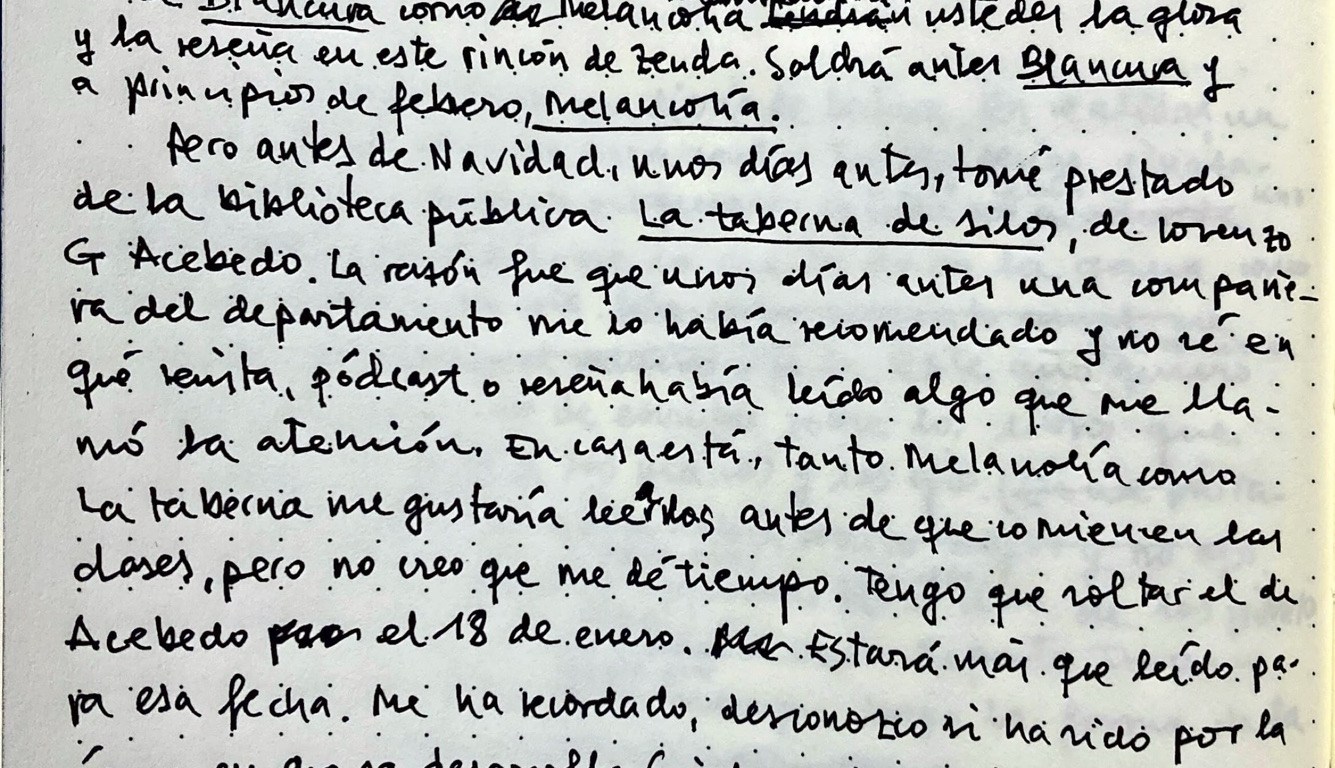 Blancura como Melancolía ustedes la glosa
y la reseña en este rincón de Zenda. Saldrá antes Blancura y
a principios de febero, Melancolía.
Pero antes de Navidad, unos días antes, tomé prestado
de la biblioteca pública La taberna de Silos, de Lorenzo
G Acebedo. La razón fue que unos días antes una compañe-
ra del departamento me lo había recomendado y no sé en
qué revista, pódcast o reseña había leído algo que me lla-
mó la atención. En casa está, tanto Melancolía como
La taberna me gustaría leerlas antes de que comiencen las
clases, pero no creo que me dé tiempo. Tengo que soltar el de
Acebedo el 18 de enero. Estará más que leído pa-
ra esa fecha. Me ha recordado, desconozco si ha sido por la
en que se desarrolla